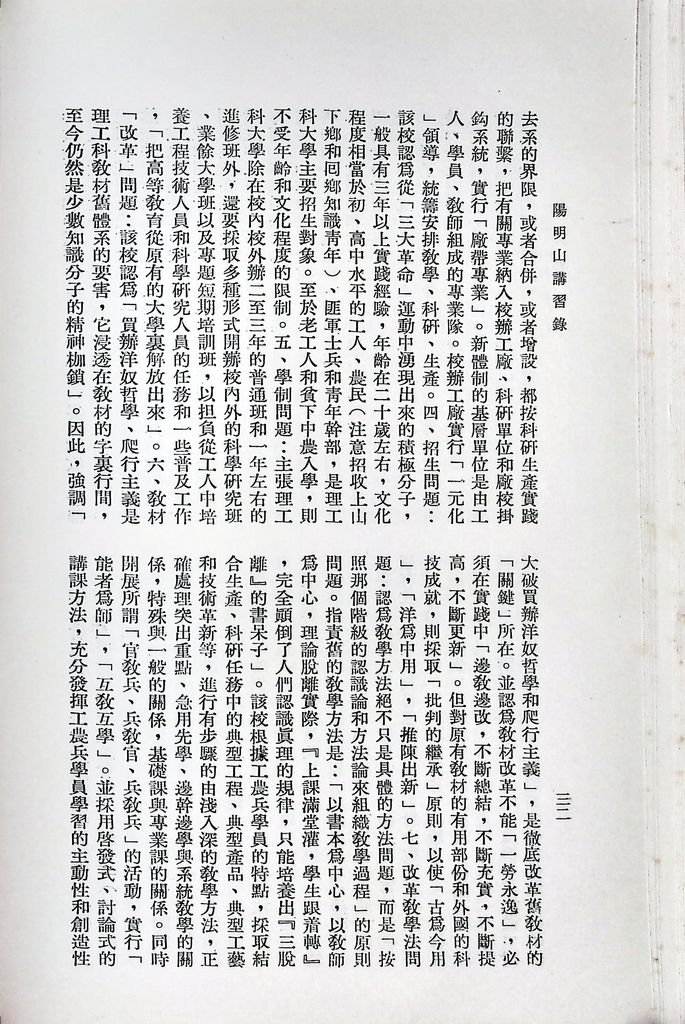 陽明山講習錄
三二一
去系的界限，或者合併，或者增設，都按科研生產實踐
的聯繫，把有關專業納入校辦工廠、科研單位和廠校掛
鈎系統，實行「廠帶專業」。新體制的基層單位是由工
人、學員、教師組成的專業隊。校辦工廠實行「一元化
」領導，統籌安排教學、科研、生產。四、招生問題：
該校認爲從「三大革命」運動中湧現出來的積極分子，
一般具有三年以上實踐經驗，年齡在二十歲左右，文化
程度相當於初、高中水平的工人、農民（注意招收上山
下鄉和囘鄉知識青年）、匪軍士兵和青年幹部，是理工
科大學主要招生對象。至於老工人和貧下中農入學，則
不受年齡和文化程度的限制。五、學制問題：主張理工
科大學除在校內校外辦二至三年的普通班和一年左右的
進修班外，還要採取多種形式開辦校內外的科學研究班
、業餘大學班以及專題短期培訓班，以担負從工人中培
養工程技術人員和科學研究人員的任務和一些普及工作
，「把高等教育從原有的大學裏解放出來」。六、教材
「改革」問題：該校認爲「買辦洋奴哲學、爬行主義是
理工科教材舊體系的要害，它浸透在教材的字裏行間，
至今仍然是少數知識分子的精神枷鎖」。因此，強調「
大破買辦洋奴哲學和爬行主義」，是徹底改革舊教材的
「關鍵」所在。並認爲教材改革不能「一勞永逸」，必
須在實踐中「邊教邊改，不斷總結，不斷充實，不斷提
高，不斷更新」。但對原有教材的有用部份和外國的科
技成就，則採取「批判的繼承」原則，以使「古爲今用
」，「洋爲中用」，「推陳出新」。七、改革教學法問
題：認爲教學方法絕不只是具體的方法問題，而是「按
照那個階級的認識論和方法論來組織教學過程」的原則
問題。指責舊的教學方法是：「以書本爲中心，以教師
爲中心，理論脫離實際，『上課滿堂灌，學生跟着轉』
，完全顚倒了人們認識眞理的規律，只能培養出『三脫
離』的書呆子」。該校根據工農兵學員的特點，採取結
合生產、科研任務中的典型工程、典型產品、典型工藝
和技術革新等，進行有步驟的由淺入深的教學方法，正
確處理突出重點、急用先學、邊幹邊學與系統教學的關
係，特殊與一般的關係，基礎課與專業課的關係。同時
開展所謂「官教兵、兵教官、兵教兵」的活動，實行「
能者爲師」，「互教互學」。並採用啓發式、討論式的
講課方法，充分發揮工農兵學員學習的主動性和創造性